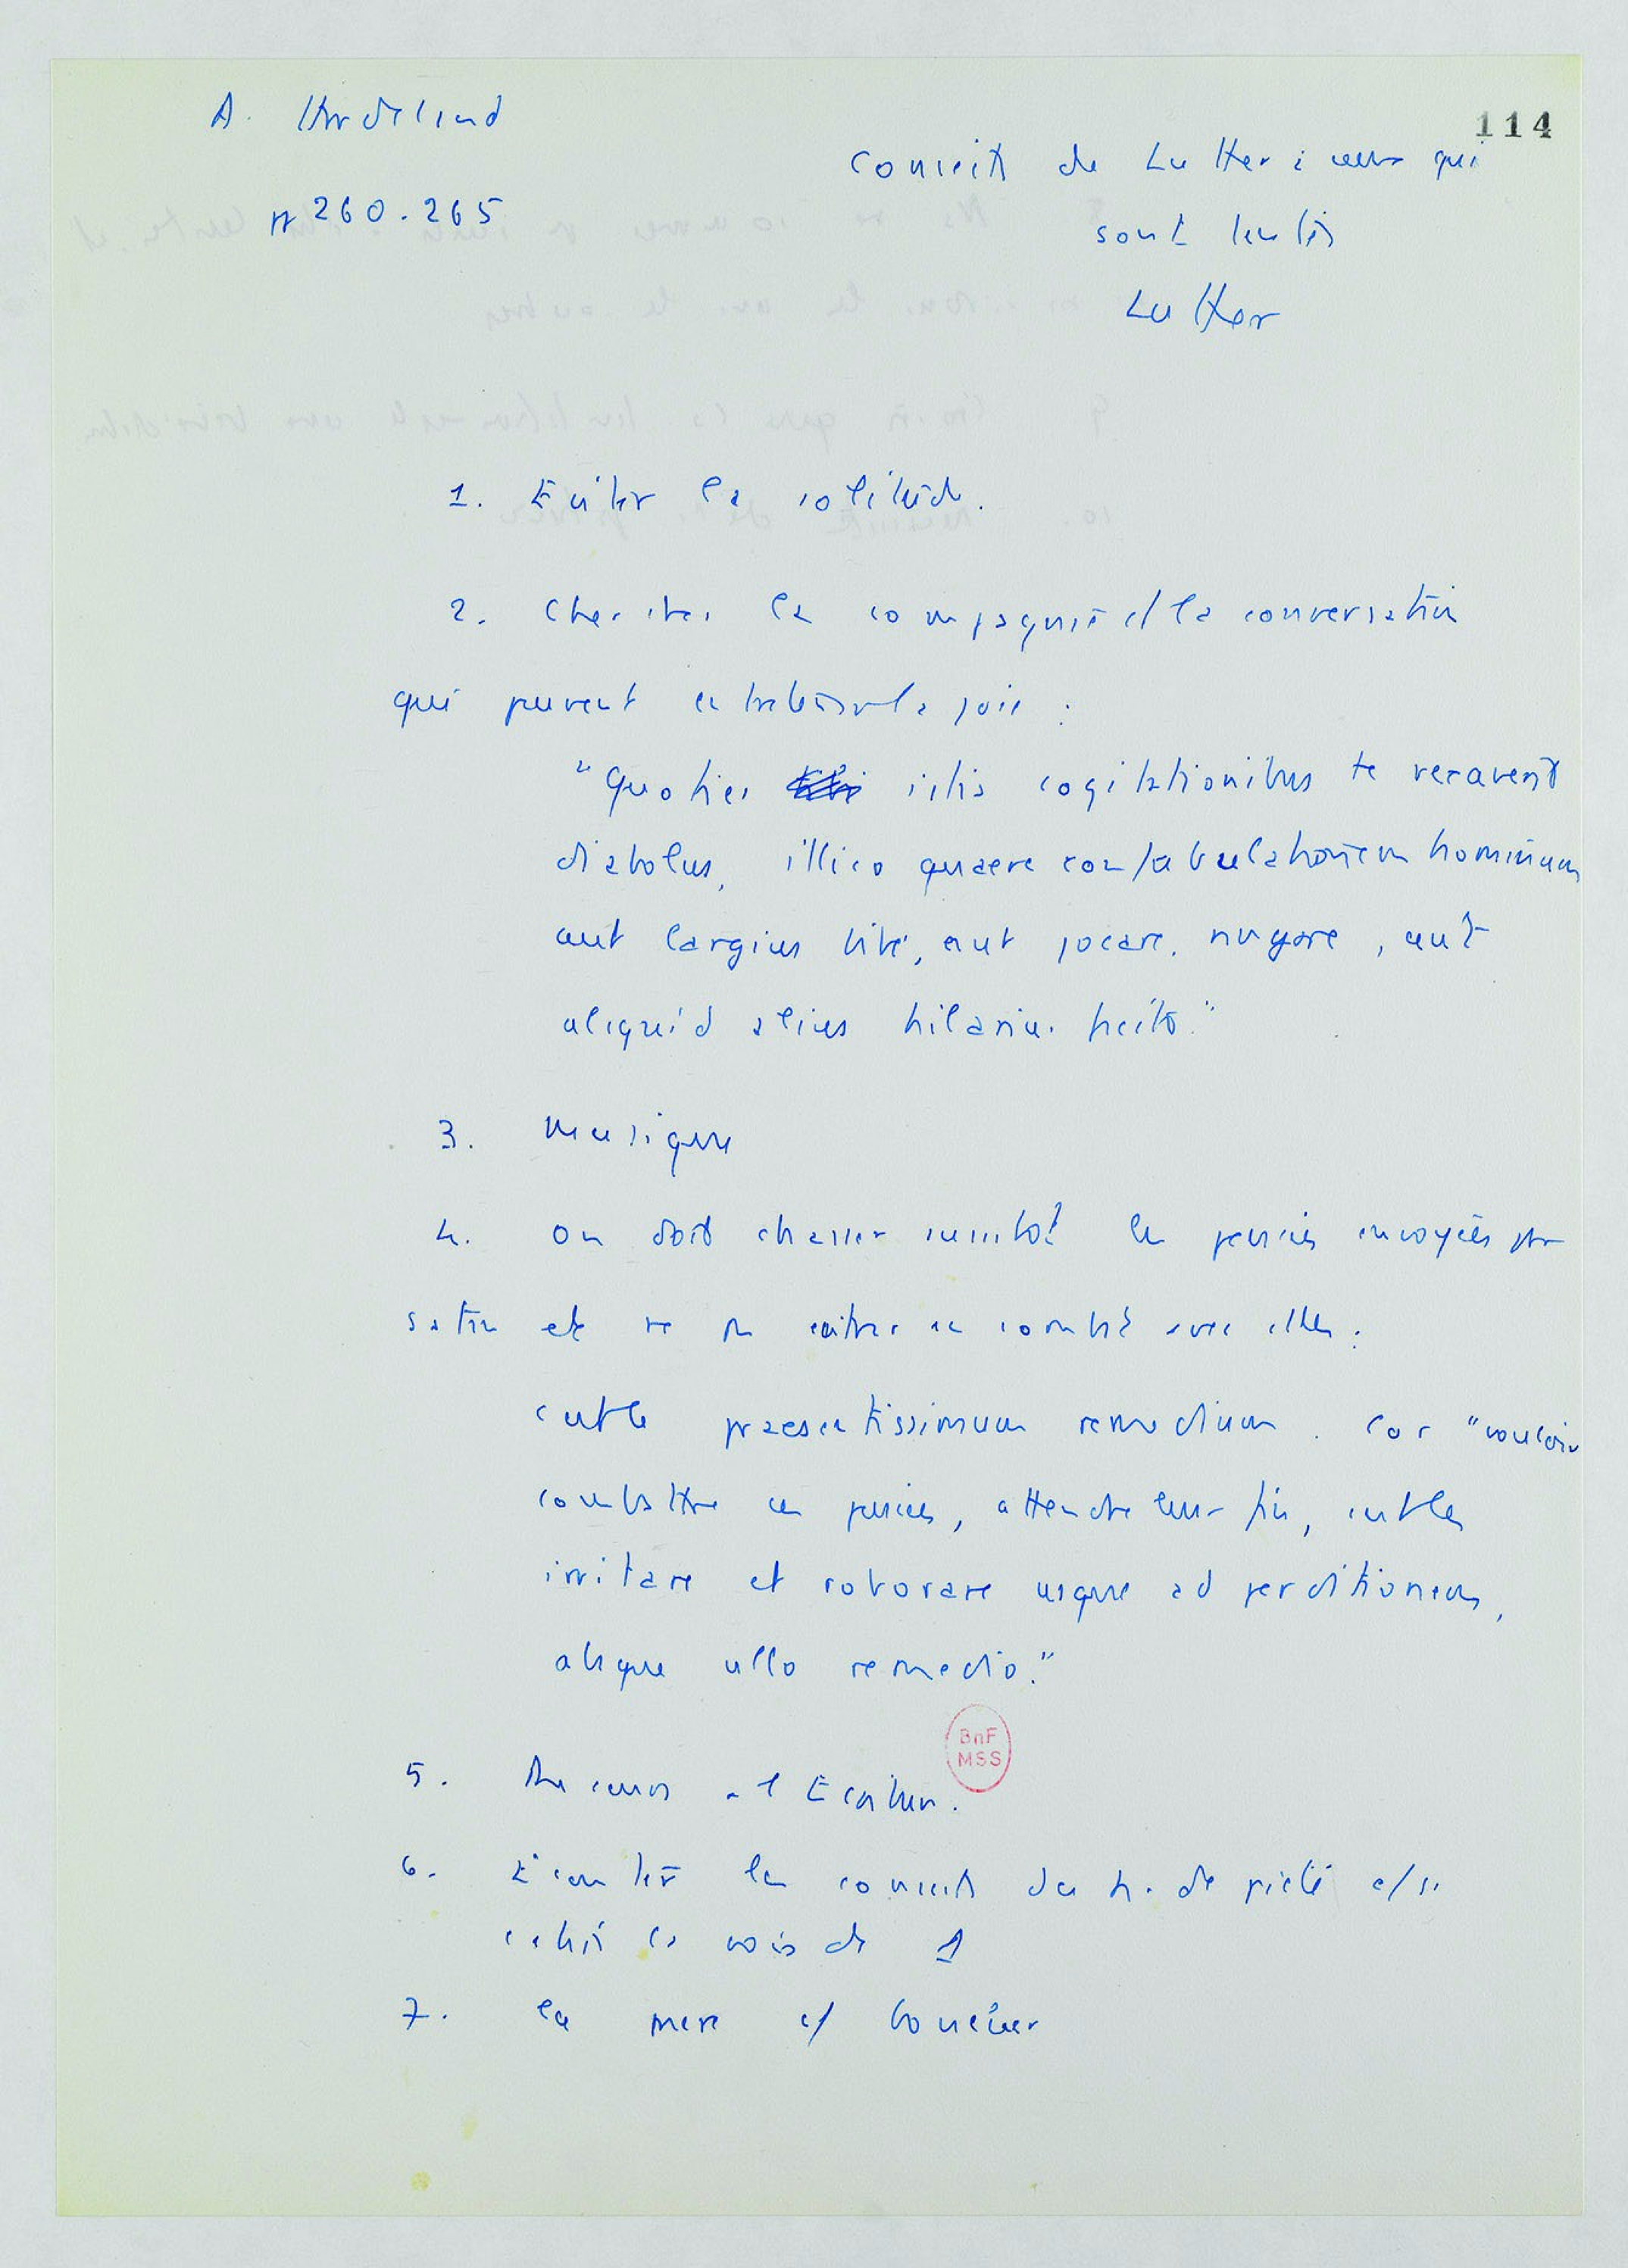 A. Hardeland
114
pp 260-265
Conseils de Luther à ceux qui
sont tentés
Luther
1. Eviter la solitude.
2. Chercher la compagnie et la conversation
qui peuvent entretenir la joie :
"Quoties istis cogitationibus te vexaverit
diabolus, illico quaere confabulationem hominum
aut largius bibe, aut jocare, nugare, aut
aliquid alius hilarius facito."
3. Musique
4. On doit chasser aussitôt les pensées envoyées par
Satan et ne pas entrer en combat avec elles :
c'est le praesentissimum remedium. Car "vouloir
combattre ces pensées, attendre leur fin, c'est les
irritare et roborare usque ad perditionem,
absque ullo remedio."
BnF
MSS
5. Recours à l'Ecriture.
6. Ecouter les conseils des h. de piété et s.
la voix de
7. La prière et